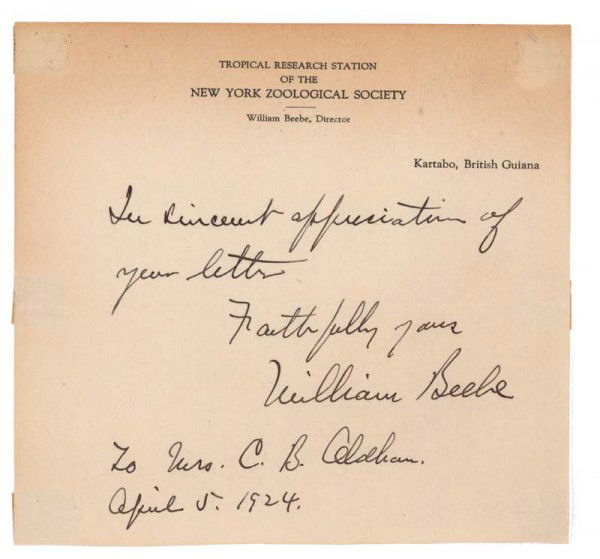 TROPICAL RESEARCH STATION
OF THE
NEW YORK ZOOLOGICAL SOCIETY
William Beebe, Director
Kartabo, British Guiana
In sincerest appreciation of
your letter
Faithfully yours
William Beebe
To Mrs. C. B. Oldham.
April 5. 1924.